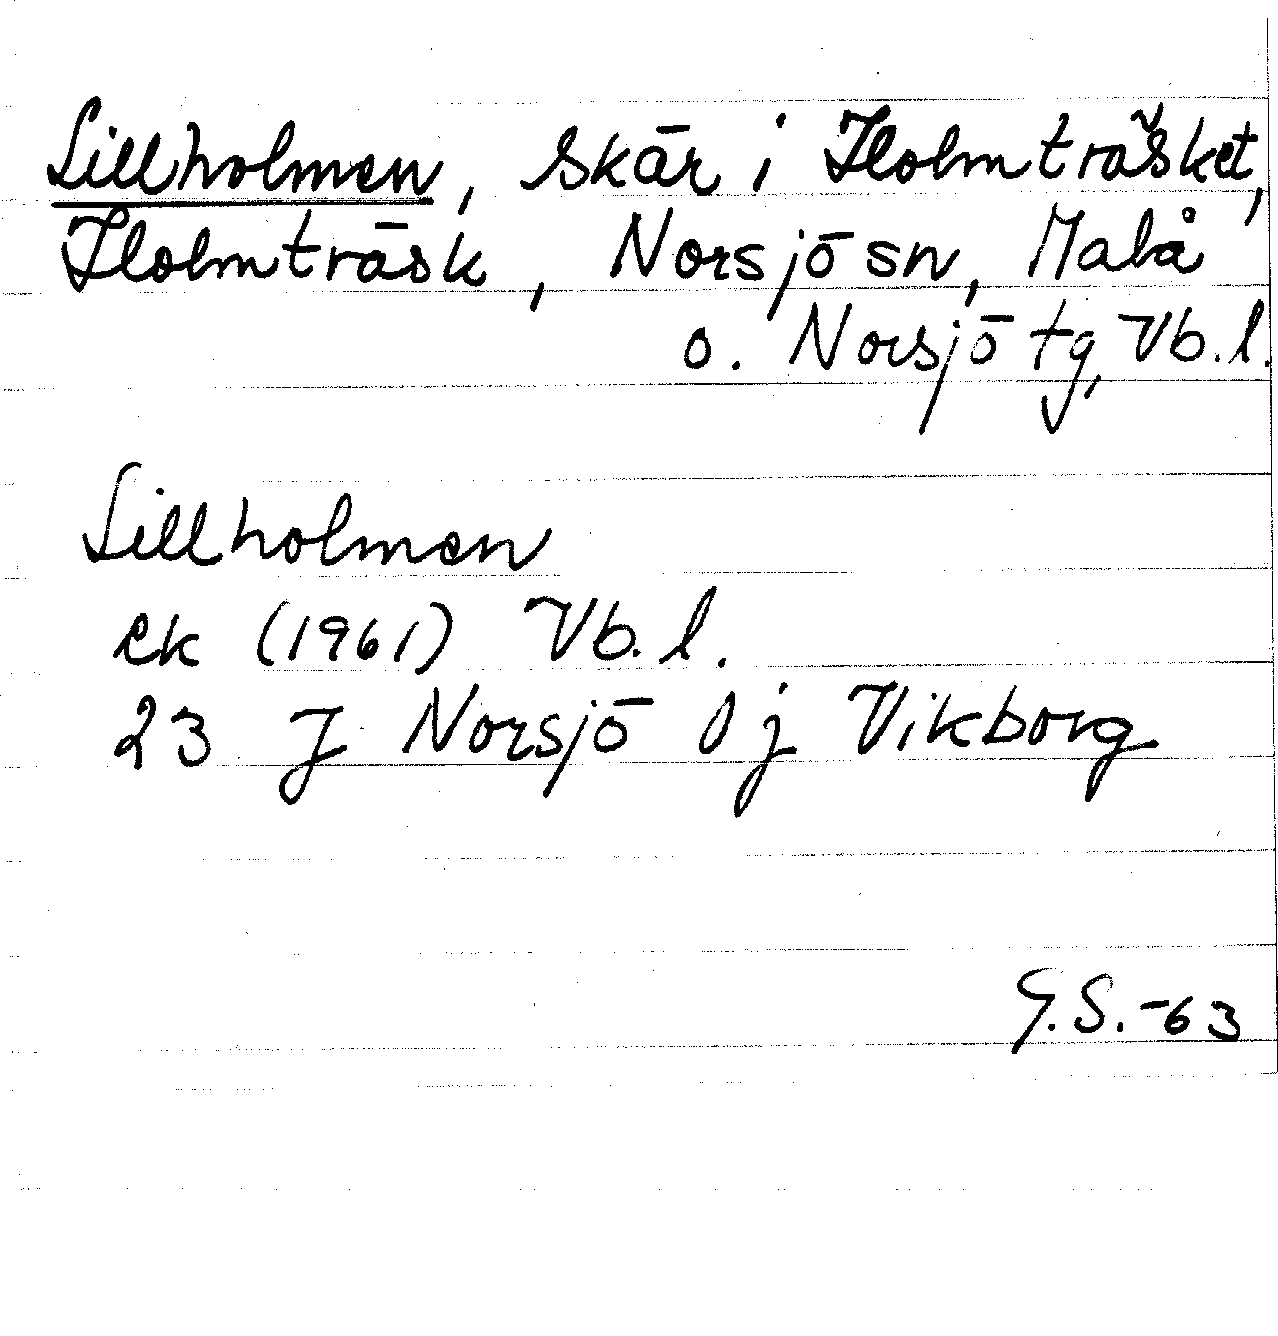 Lillholmen, skär i Holmträsket,
Holmträsk, Norsjö sn, Malå
o. Norsjö tg, Vb. l.
Lillholmen
ek (1961) Vb. l.
23 J Norsjö 0 j Vikborg
G.S. -63